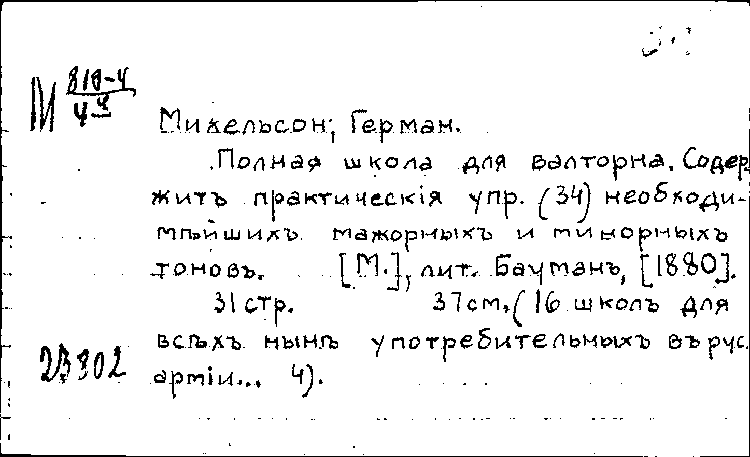 М 810-4
4 4
Михельсон, Герман.
Полная школа для валторна. Содер-
житъ практическія упр. (34) необходи-
мѣйшихъ мажорныхъ и минорныхъ
тоновъ. [М.], лит. Бауманъ, [1880].
31 стр. 37см. (16 школъ для
всѣхъ нынѣ употребительныхъ въ рус.
арміи... 4).
23302